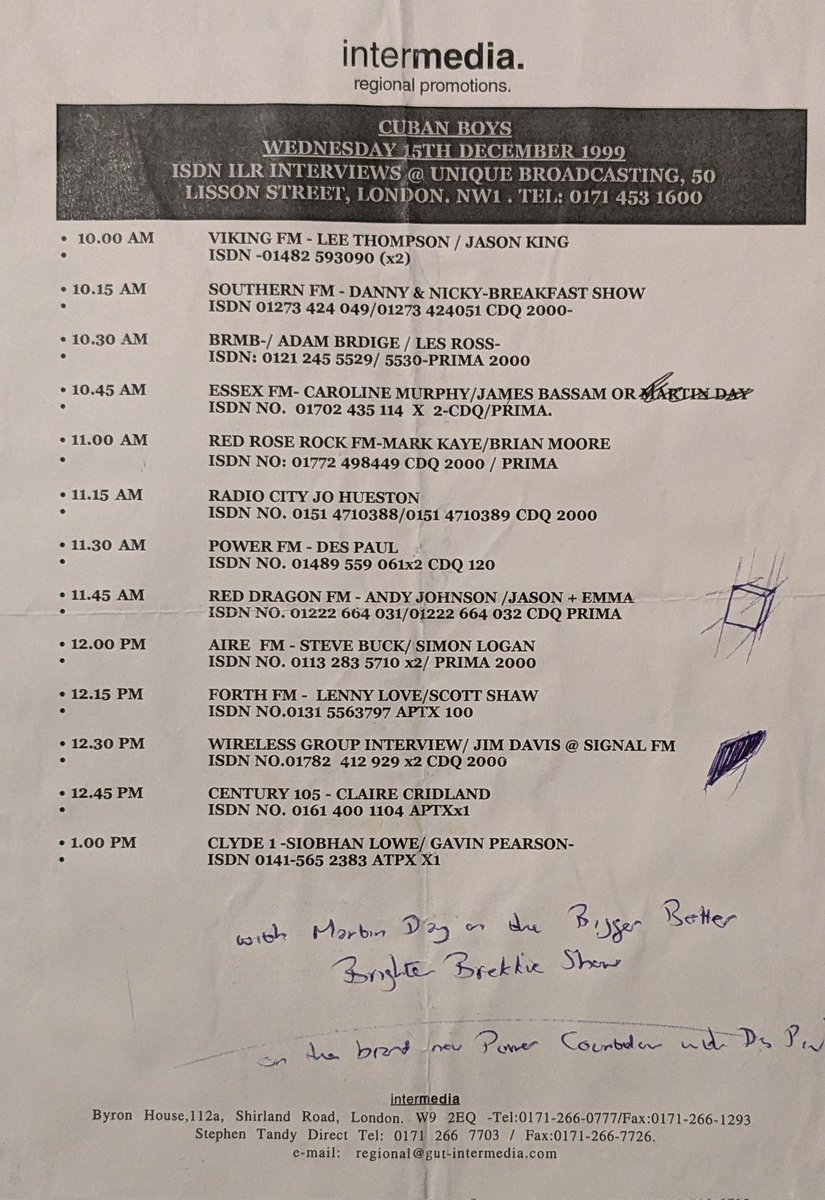 intermedia.
regional promotions.
CUBAN BOYS
WEDNESDAY 15TH DECEMBER 1999
ISDN ILR INTERVIEWS @ UNIQUE BROADCASTING, 50
LISSON STREET, LONDON. NW1 . TEL: 0171 453 1600
• 10.00 AM VIKING FM - LEE THOMPSON / JASON KING
• ISDN -01482 593090 (x2)
• 10.15 AM SOUTHERN FM - DANNY & NICKY-BREAKFAST SHOW
• ISDN 01273 424 049/01273 424051 CDQ 2000-
• 10.30 AM BRMB-/ ADAM BRDIGE / LES ROSS-
• ISDN: 0121 245 5529/ 5530-PRIMA 2000
• 10.45 AM ESSEX FM- CAROLINE MURPHY/JAMES BASSAM OR MARTIN DAY
• ISDN NO. 01702 435 114 X 2-CDQ/PRIMA.
• 11.00 AM RED ROSE ROCK FM-MARK KAYE/BRIAN MOORE
• ISDN NO: 01772 498449 CDQ 2000 / PRIMA
• 11.15 AM RADIO CITY JO HUESTON
• ISDN NO. 0151 4710388/0151 4710389 CDQ 2000
• 11.30 AM POWER FM - DES PAUL
• ISDN NO. 01489 559 061x2 CDQ 120
• 11.45 AM RED DRAGON FM - ANDY JOHNSON /JASON + EMMA
• ISDN NO. 01222 664 031/01222 664 032 CDQ PRIMA
• 12.00 PM AIRE FM - STEVE BUCK/ SIMON LOGAN
• ISDN NO. 0113 283 5710 x2/ PRIMA 2000
• 12.15 PM FORTH FM - LENNY LOVE/SCOTT SHAW
• ISDN NO.0131 5563797 APTX 100
• 12.30 PM WIRELESS GROUP INTERVIEW/ JIM DAVIS @ SIGNAL FM
• ISDN NO.01782 412 929 x2 CDQ 2000
• 12.45 PM CENTURY 105 - CLAIRE CRIDLAND
• ISDN NO. 0161 400 1104 APTXx1
• 1.00 PM CLYDE 1 -SIOBHAN LOWE/ GAVIN PEARSON-
• ISDN 0141-565 2383 ATPX X1
with Martin Day on the Bigger Better
Brighter Brekkie Show
on the brand new Power Countdown with Des
intermedia
Byron House,112a, Shirland Road, London. W9 2EQ -Tel:0171-266-0777/Fax:0171-266-1293
Stephen Tandy Direct Tel: 0171 266 7703 / Fax:0171-266-7726.
e-mail: regional@gut-intermedia.com